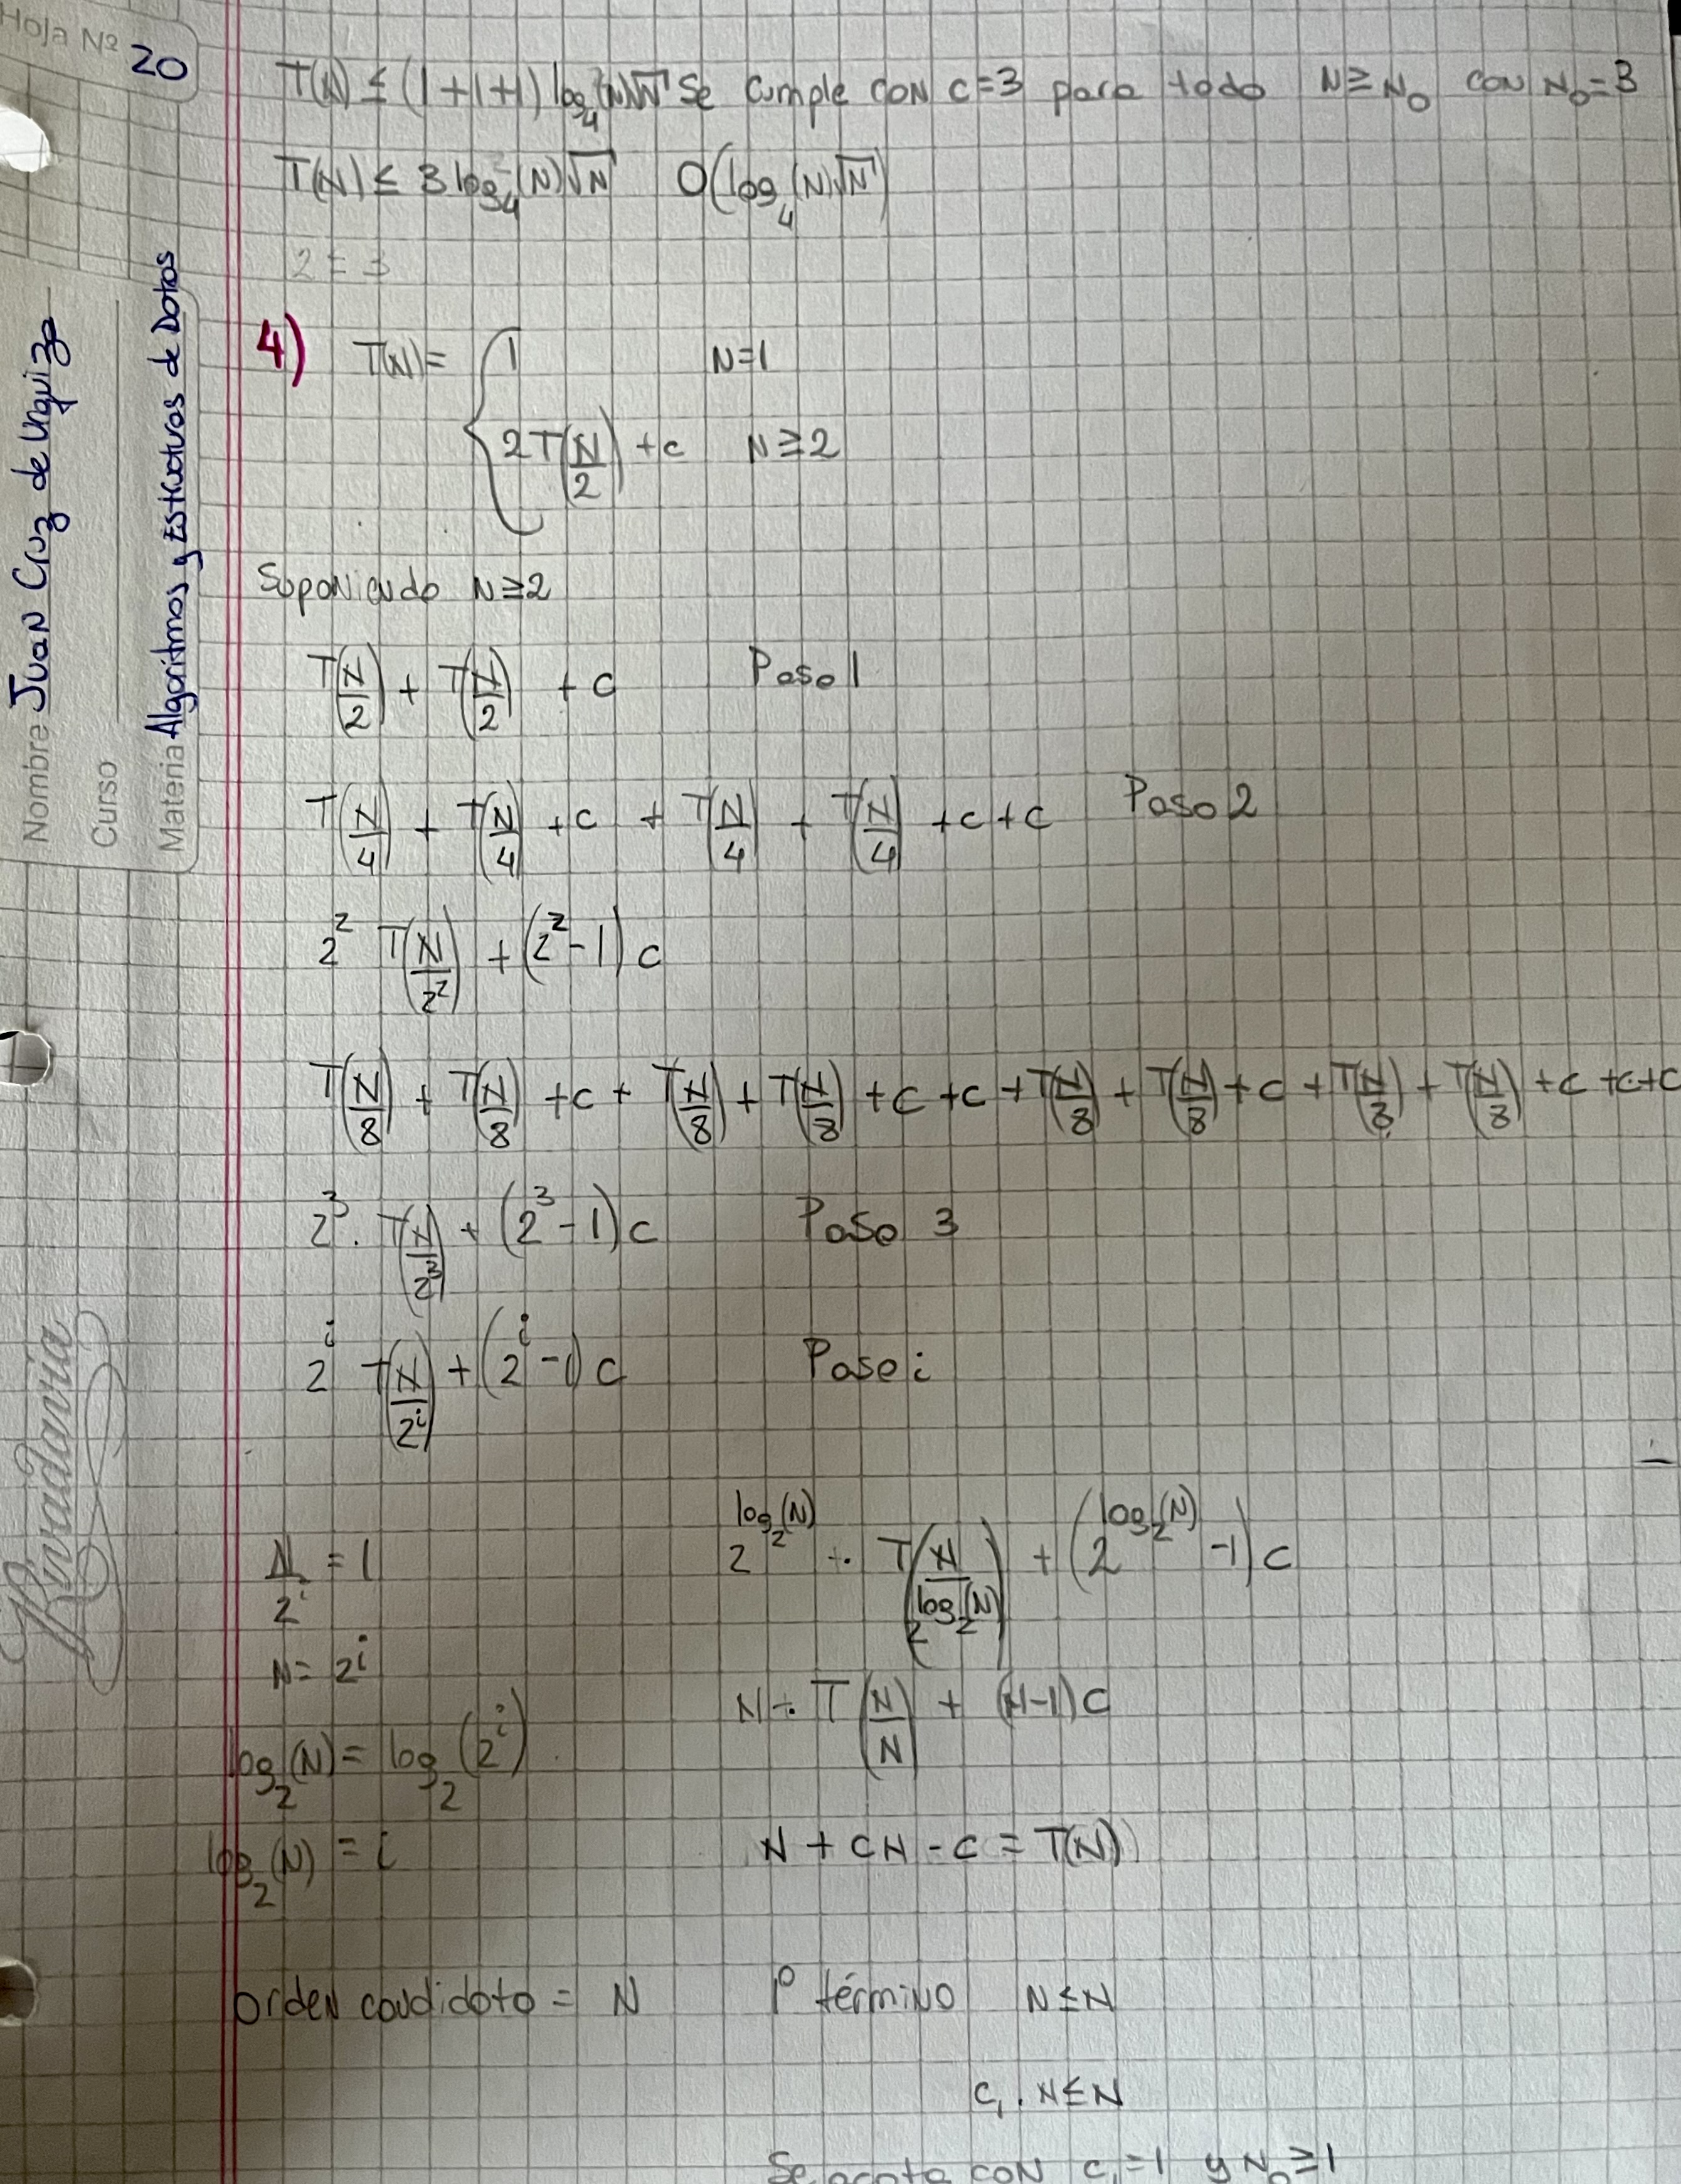 Hoja Nº 20
Nombre Juan Cruz de Urquiza
Curso
Materia Algoritmos y Estructuras de Datos
Rivadavia
T(N) ≤ (1+1+1) log₄(N)√N Se cumple con c=3 para todo N≥N₀ con N₀=3
T(N) ≤ 3 log₄(N)√N O(log₄(N)√N)
2 = 3
4) T(N) = { 1 N=1
2T(N/2) + c N≥2
Suponiendo N≥2
T(N/2) + T(N/2) + c Paso 1
T(N/4) + T(N/4) + c + T(N/4) + T(N/4) + c + c Paso 2
2² T(N/2²) + (2²-1) c
T(N/8) + T(N/8) + c + T(N/8) + T(N/8) + c + c + T(N/8) + T(N/8) + c + T(N/8) + T(N/8) + c + c + c
2³ . T(N/2³) + (2³-1) c Paso 3
2^i T(N/2^i) + (2^i-1) c Paso i
N/2^i = 1
N = 2^i
log₂(N) = log₂(2^i)
log₂(N) = i
2^log₂(N) . T(N/2^log₂(N)) + (2^log₂(N) -1) c
N . T(N/N) + (N-1) c
N + cN - c = T(N)
orden candidato = N 1º término N≤N
c₁ . N≤N
Se acota con c₁=1 y N₀≥1